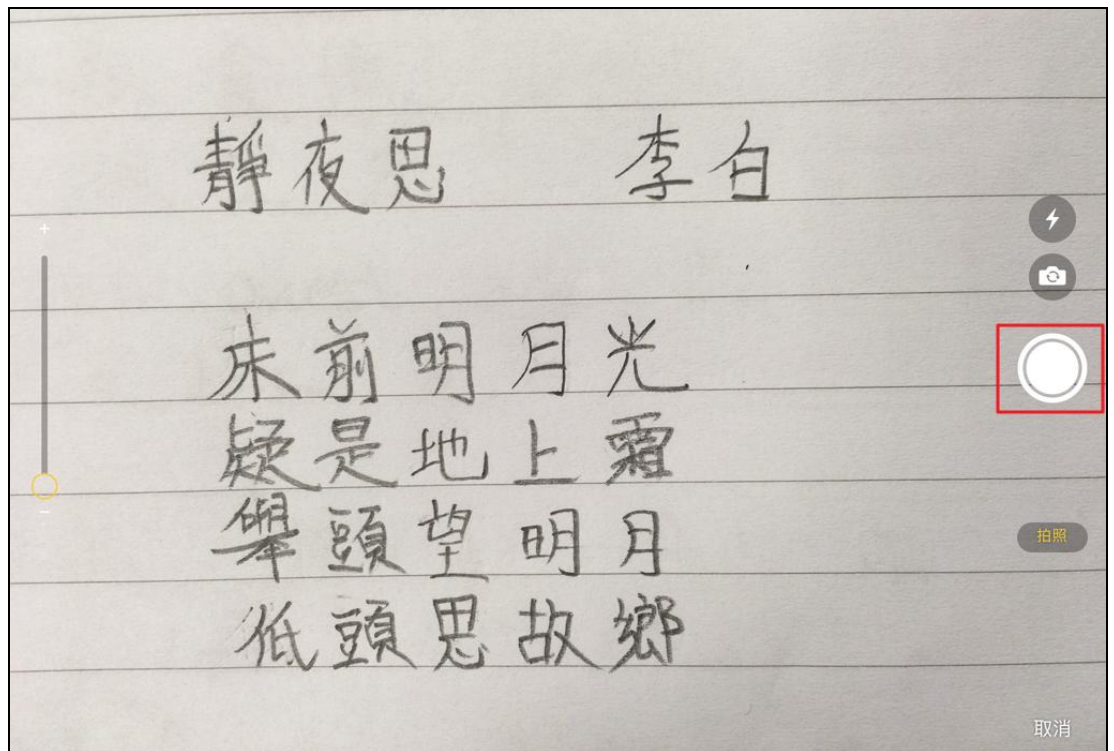 靜夜思 李白
床前明月光
疑是地上霜
舉頭望明月
低頭思故鄉
拍照
取消